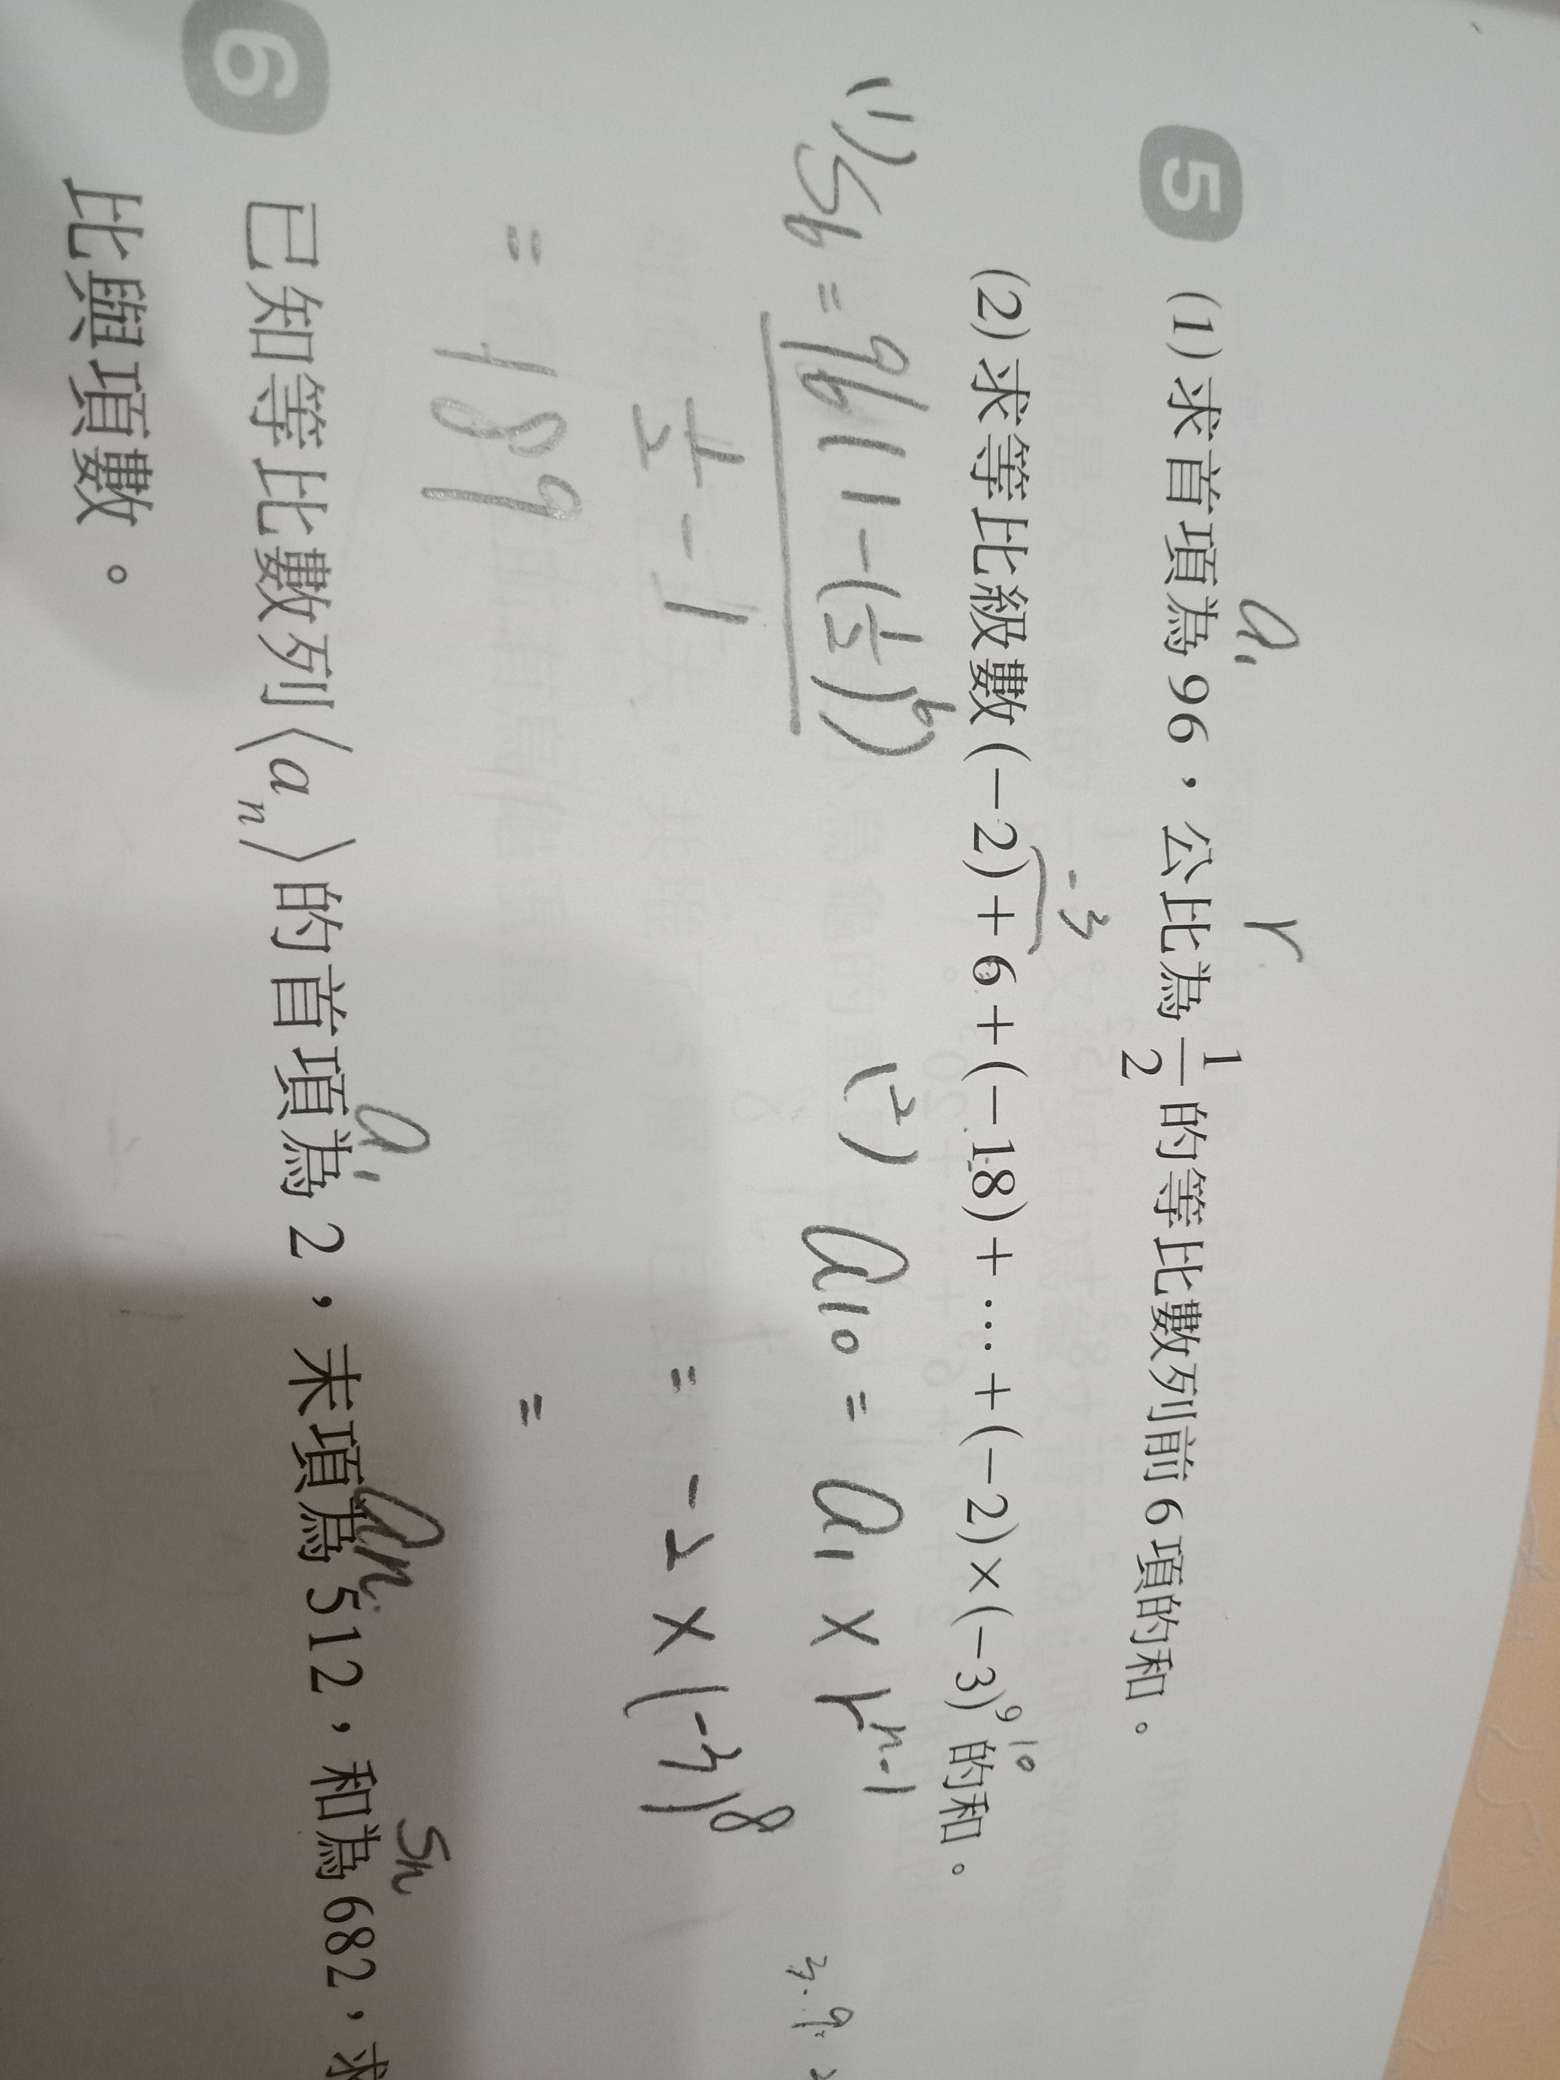 a₁ r
5 (1) 求首項為 96，公比為 1/2 的等比數列前 6 項的和。
-3
(2) 求等比級數 (−2)+6+(−18)+⋯+(−2)×(−3)⁹ 的和。
10
(1) S₆ = 96(1-(1/2)⁶)
1/2 - 1
= 189
(2) a₁₀ = a₁ × rⁿ⁻¹
= -2 × (-3)⁸
=
3. 9.
a₁ an Sn
6 已知等比數列〈aₙ〉的首項為 2，末項為 512，和為 682，求
比與項數。